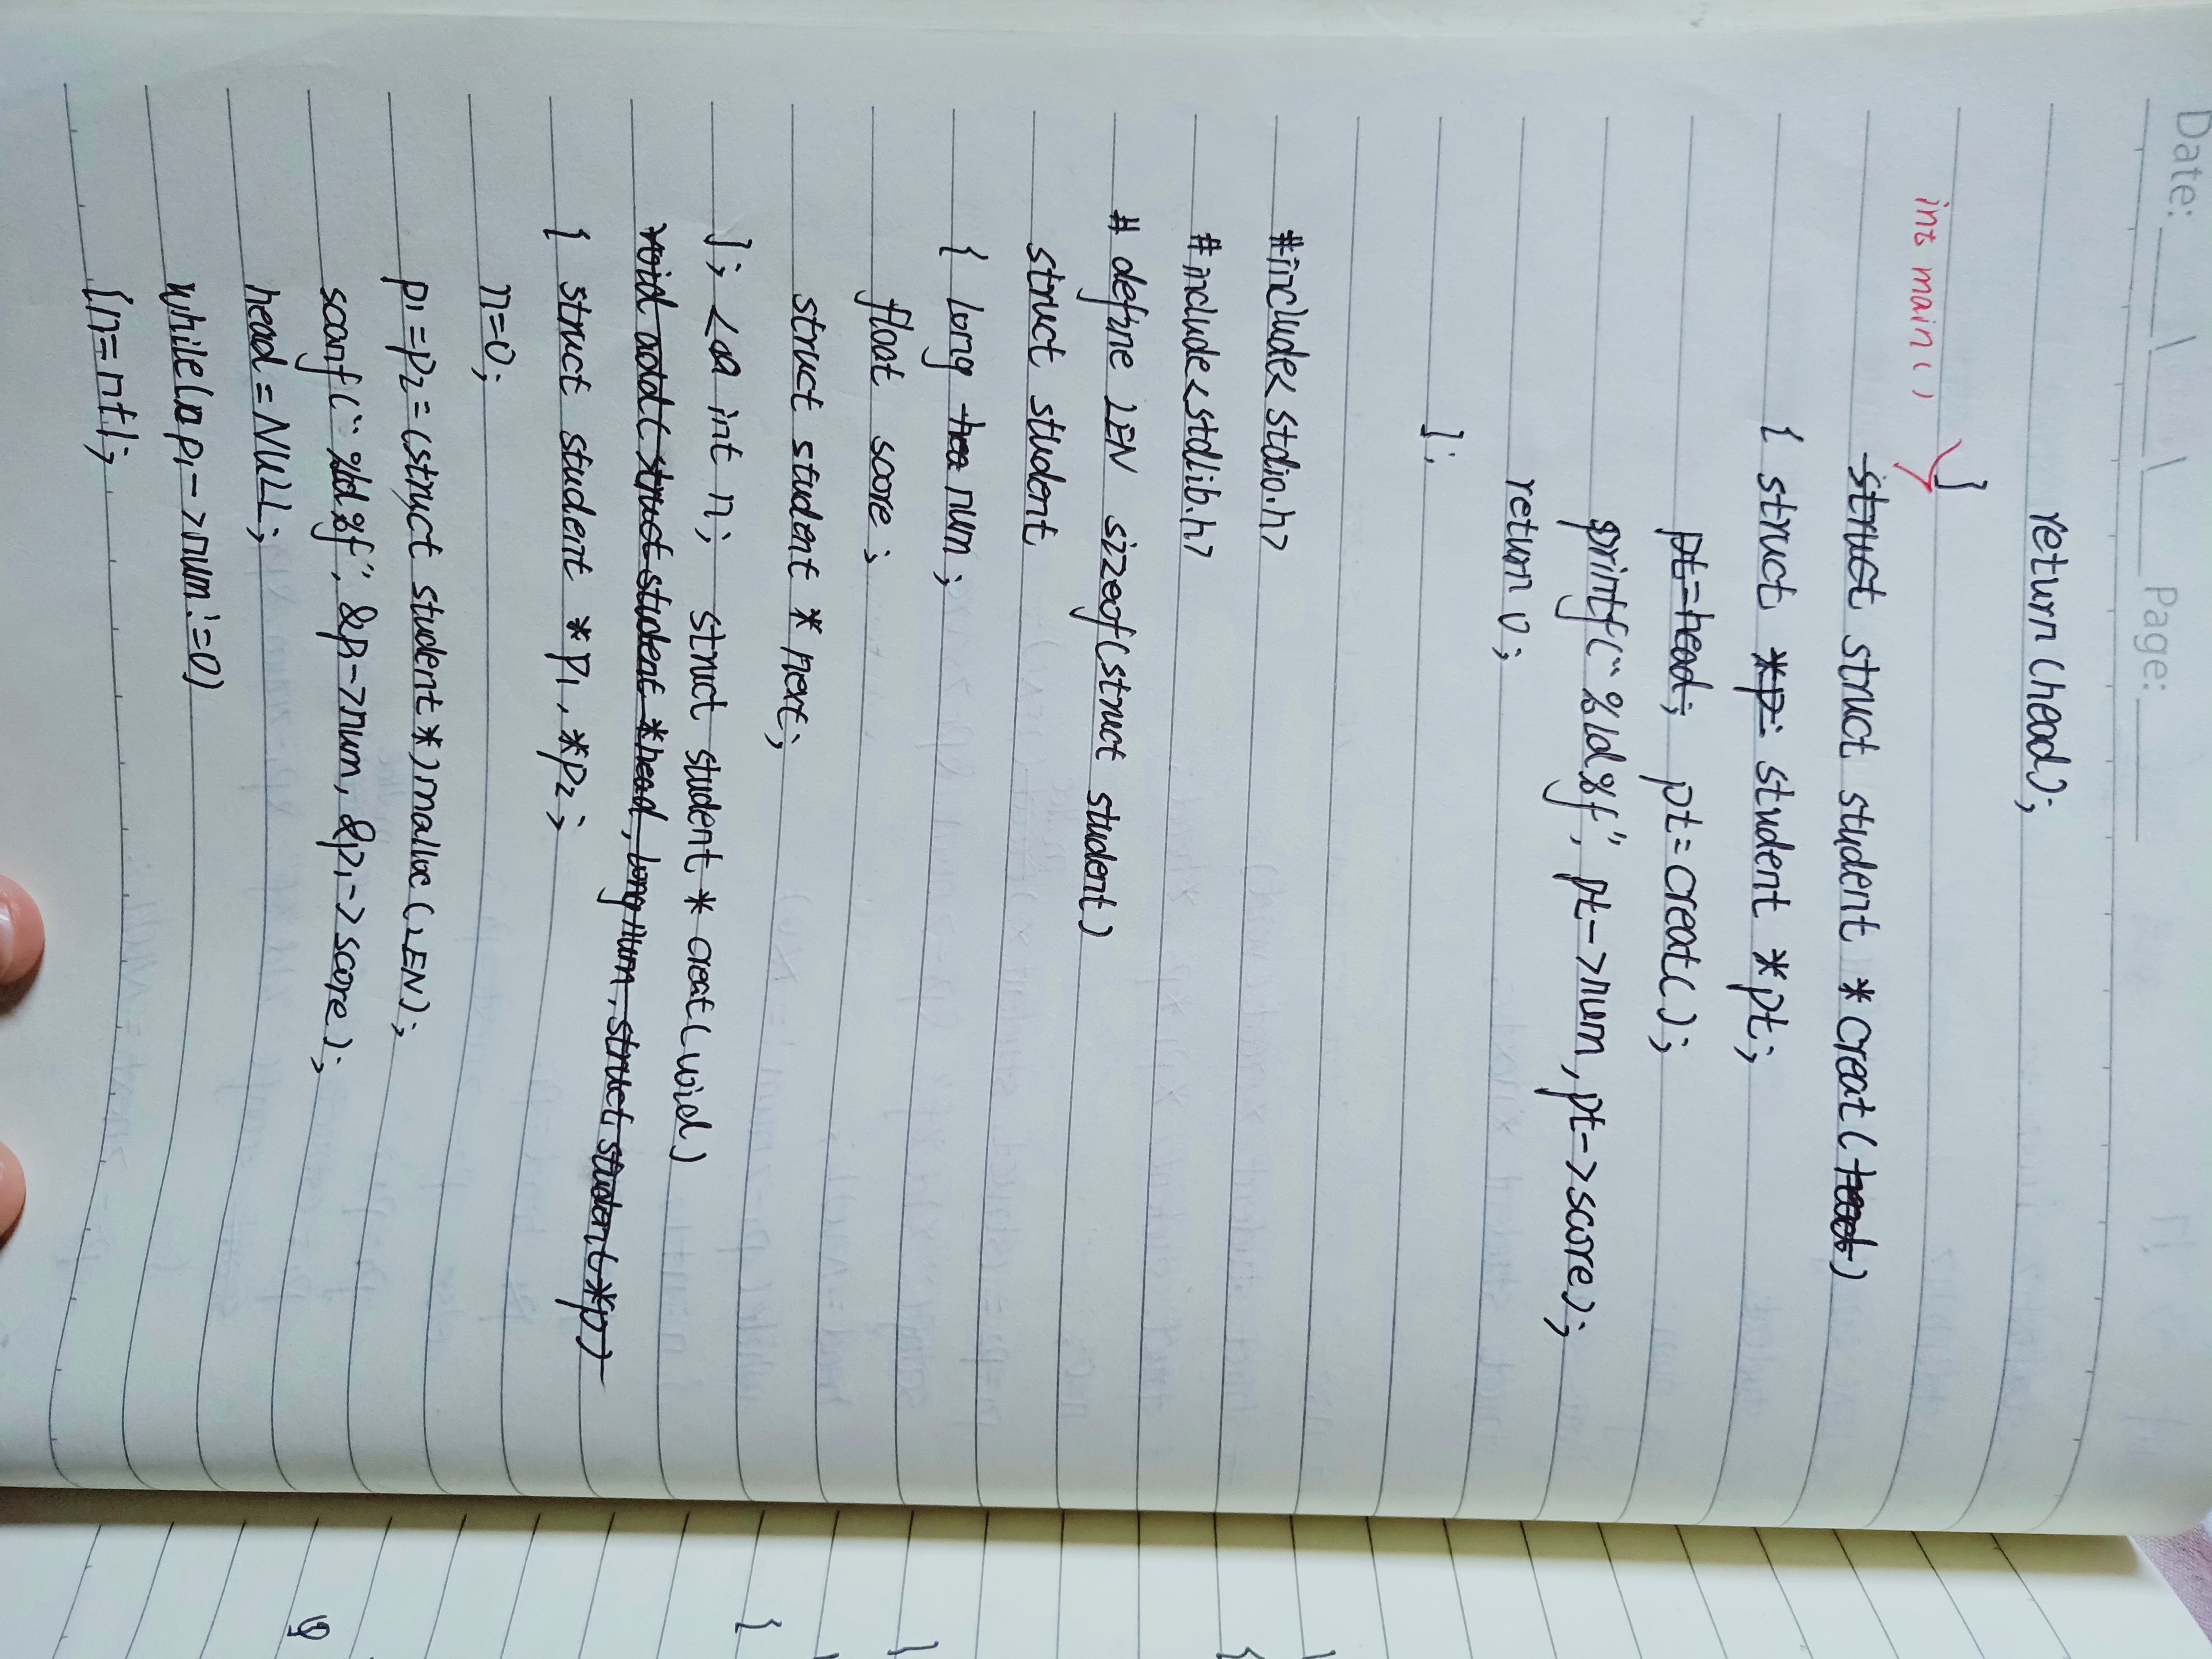 Date: Page:
return(head);
}
int main()
struct struct student *creat(head)
{ struct *p; student *pt;
pt=head; pt=creat();
printf("%ld%f", pt->num, pt->score);
return 0;
};
#include<stdio.h>
#include<stdlib.h>
# define LEN sizeof(struct student)
struct student
{ long hea num;
float score;
struct student * next;
}; int n; struct student * creat(void)
void add(struct student *head, long num, struct student *p)
{ struct student *p1, *p2;
n=0;
p1=p2=(struct student*)malloc(LEN);
scanf("%ld%f", &p1->num, &p1->score);
head=NULL;
while(p1->num!=0)
{n=n+1;